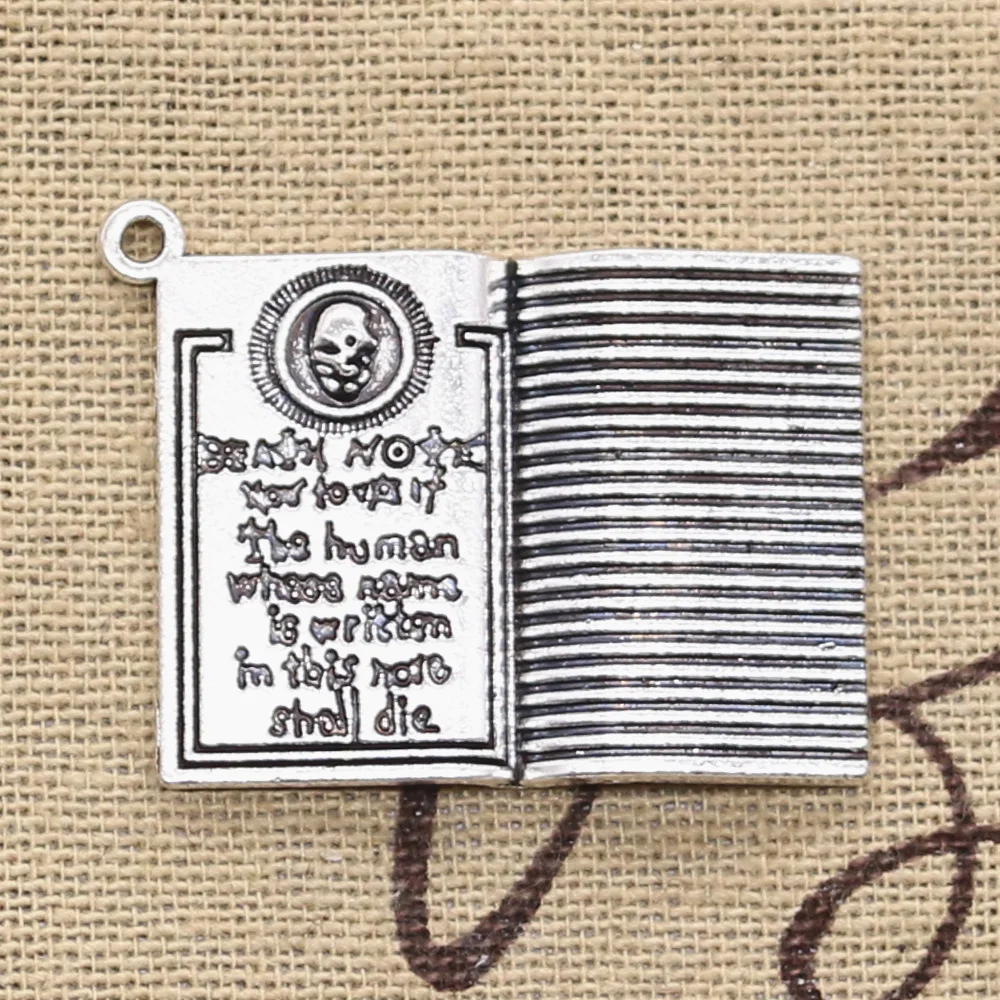 DEATH NOTE
How to use it
The human
whose name
is written
in this note
shall die